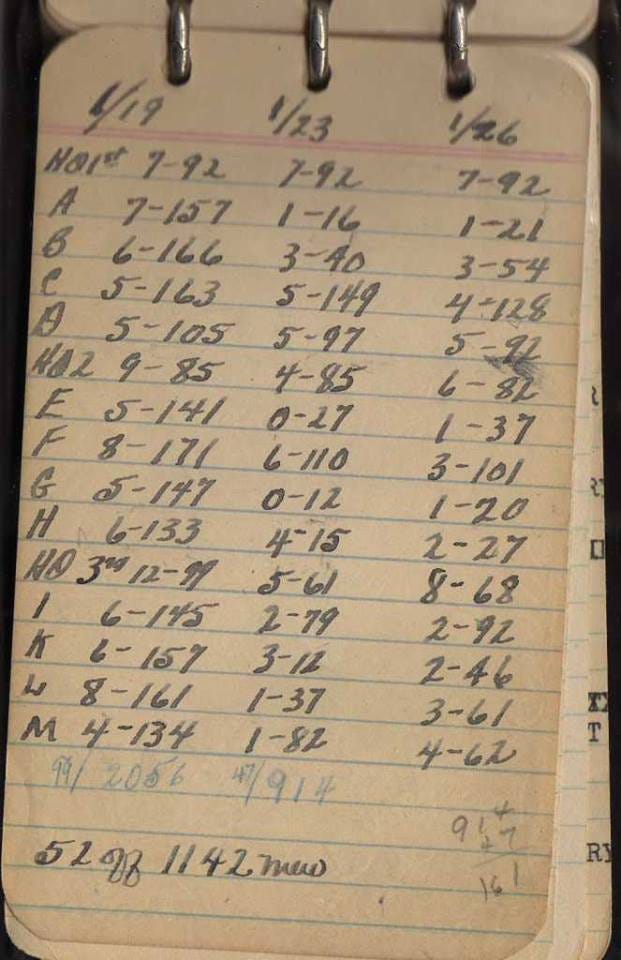 1/19 1/23 1/26
HQ 1st 7-92 7-92 7-92
A 7-157 1-16 1-21
B 6-166 3-40 3-54
C 5-163 5-149 4-128
D 5-105 5-97 5-92
HQ 2 9-85 4-85 6-82
E 5-141 0-27 1-37
F 8-171 6-110 3-101
G 5-147 0-12 1-20
H 6-133 4-15 2-27
HQ 3rd 12-99 5-61 8-68
I 6-145 2-79 2-92
K 6-157 3-12 2-46
L 8-161 1-37 3-61
M 4-134 1-82 4-62
99/2056 47/914
914
47
161
52 off 1142 men
RY
T
RY